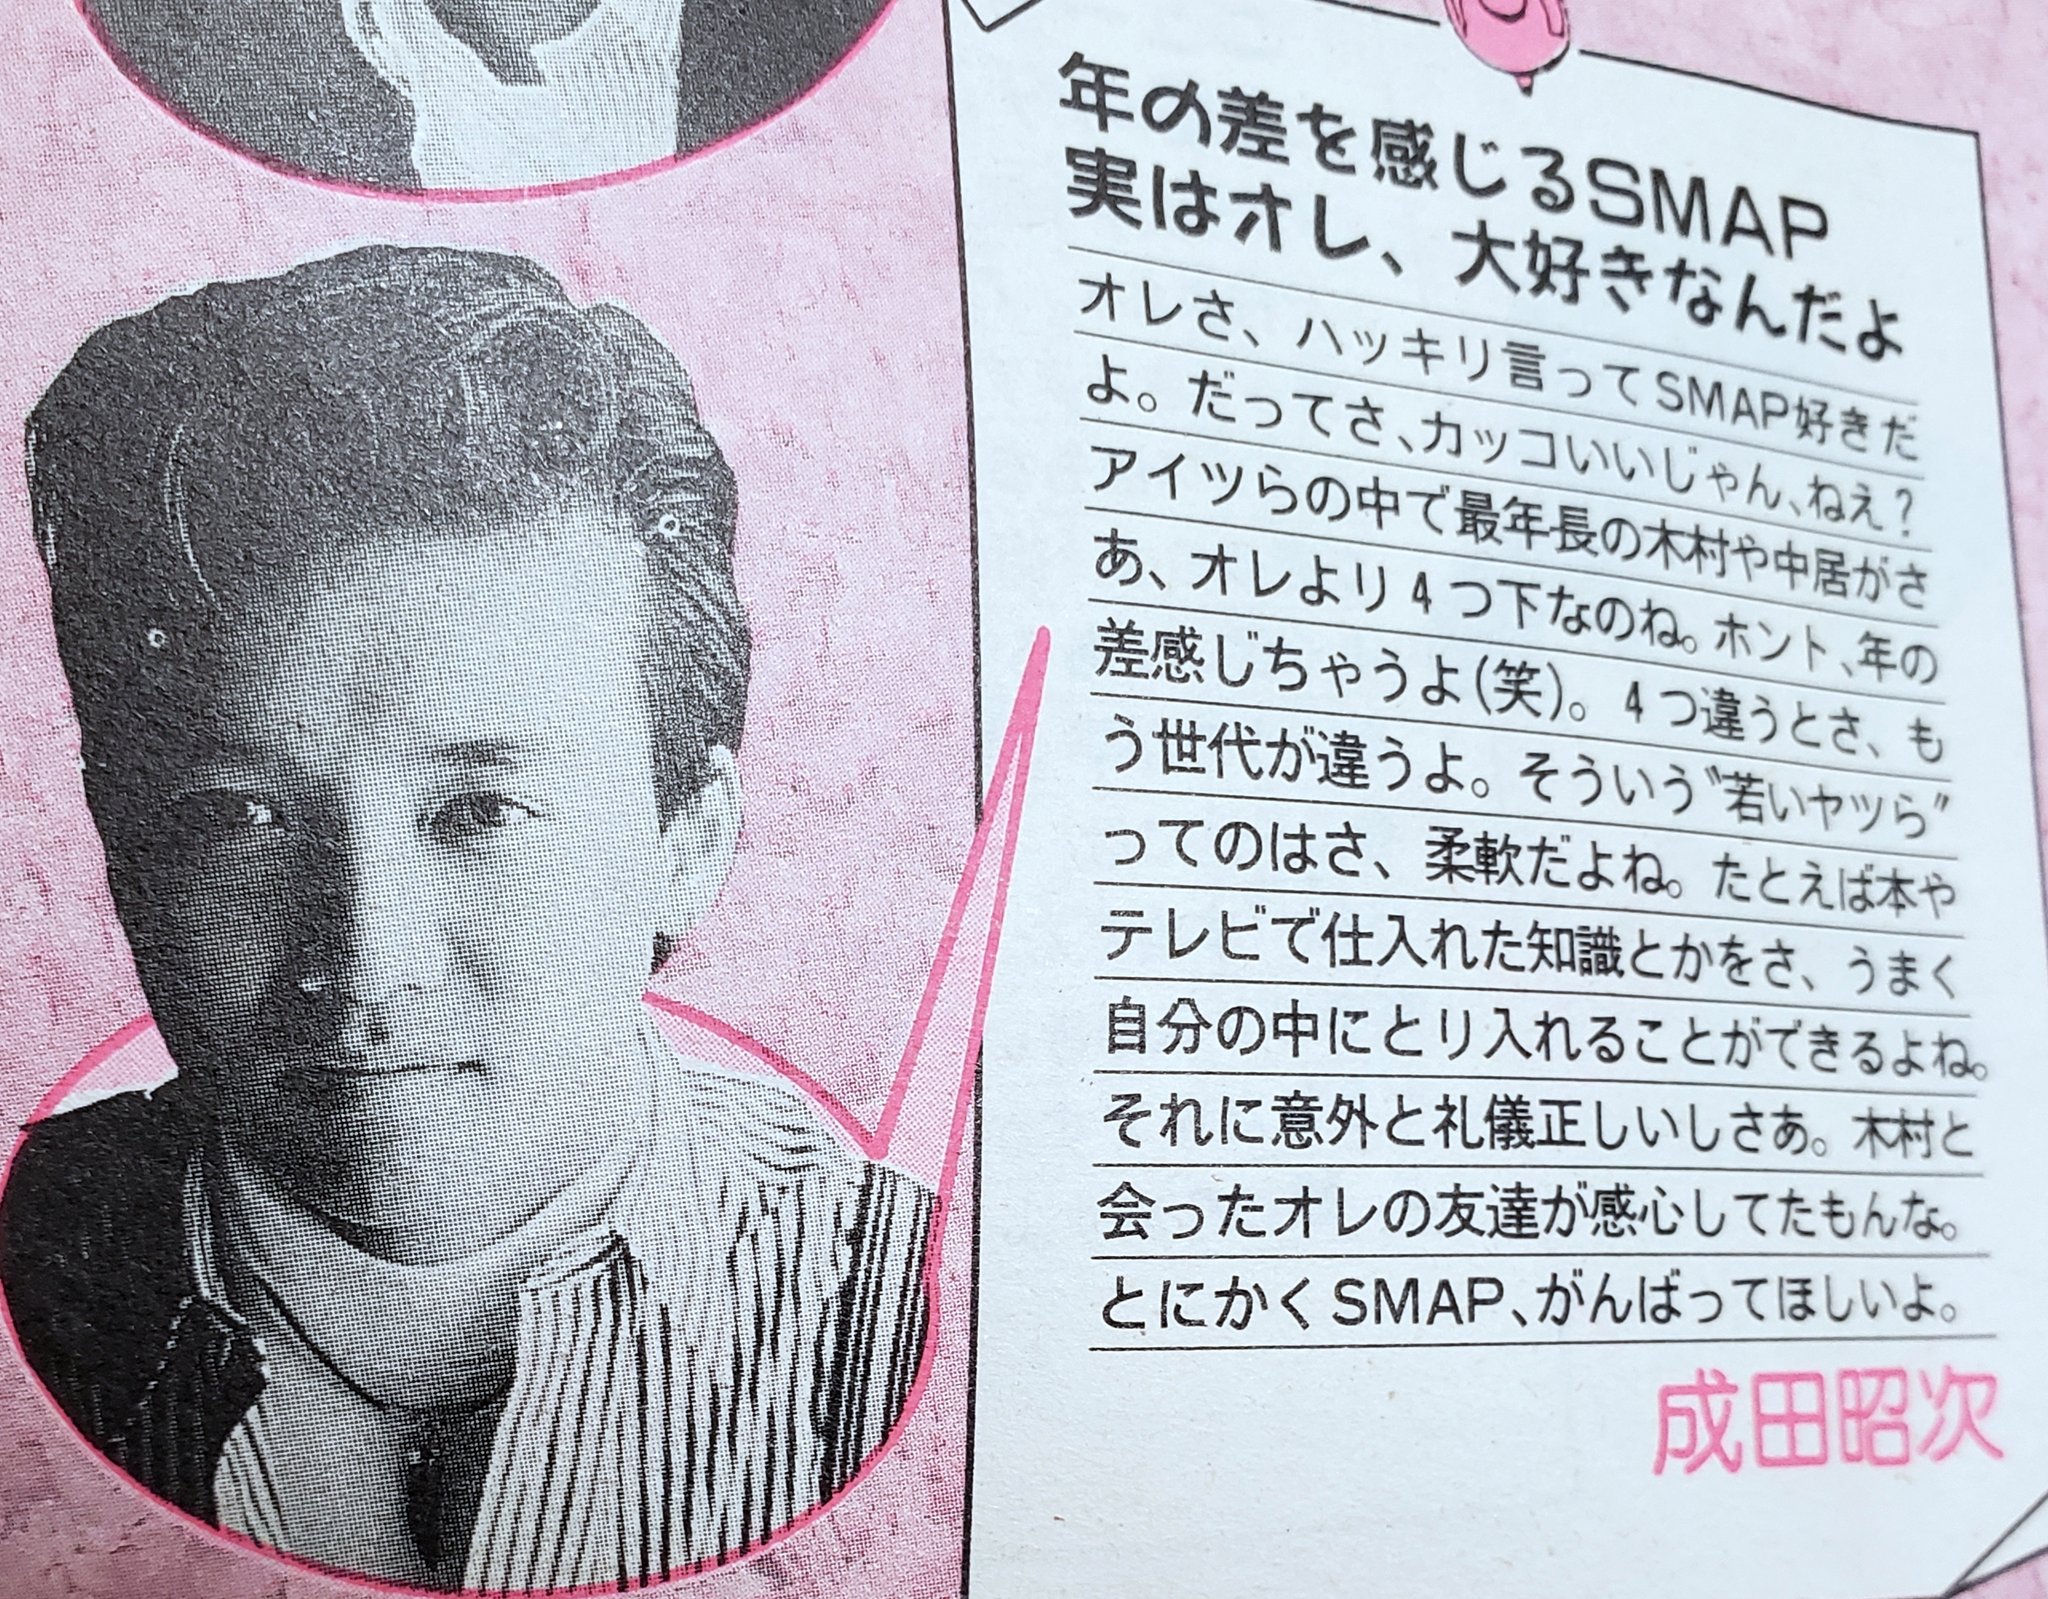 年の差を感じるSMAP
実はオレ、大好きなんだよ
オレさ、ハッキリ言ってSMAP好きだ
よ。だってさ、カッコいいじゃん、ねえ？
アイツらの中で最年長の木村や中居がさ
あ、オレより4つ下なのね。ホント、年の
差感じちゃうよ(笑)。4つ違うとさ、も
う世代が違うよ。そういう〝若いヤツら〟
ってのはさ、柔軟だよね。たとえば本や
テレビで仕入れた知識とかをさ、うまく
自分の中にとり入れることができるよね。
それに意外と礼儀正しいしさあ。木村と
会ったオレの友達が感心してたもんな。
とにかくSMAP、がんばってほしいよ。
成田昭次